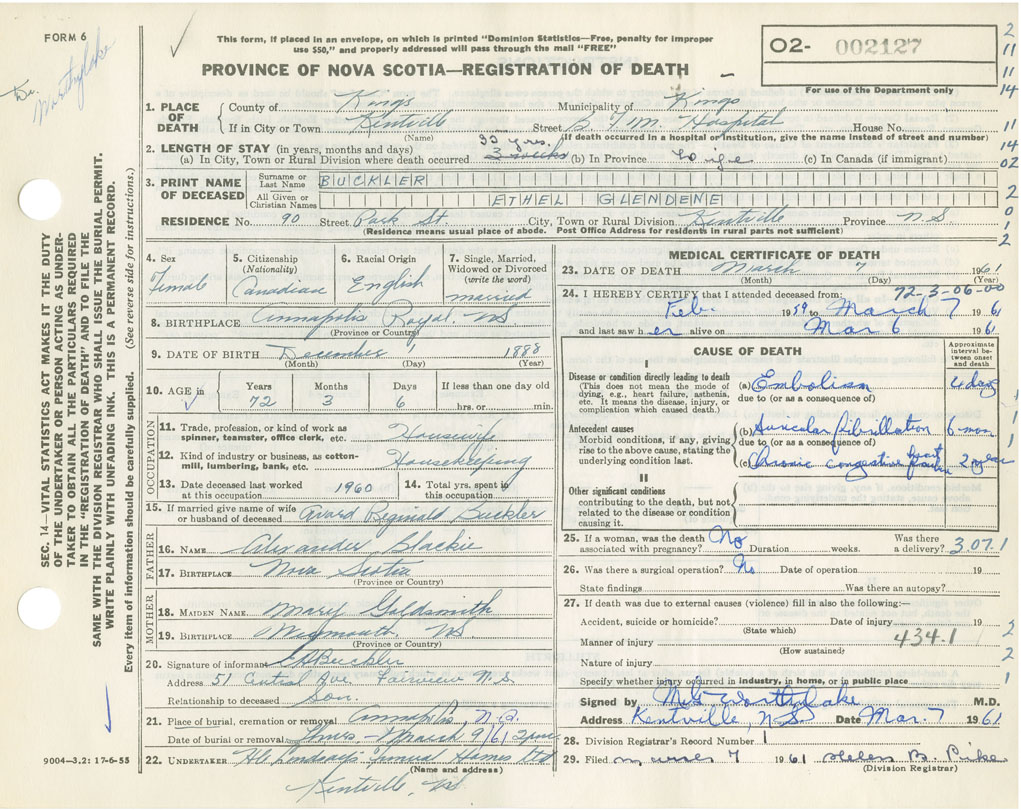 FORM 6
This form, if placed in an envelope, on which is printed "Dominion Statistics—Free, penalty for improper
use $50," and properly addressed will pass through the mail "FREE"
PROVINCE OF NOVA SCOTIA—REGISTRATION OF DEATH
02- 002127
For use of the Department only
Worthylake
1. PLACE OF DEATH
County of Kings Municipality of Kings
If in City or Town Kentville Street B.F.M. Hospital House No.
(Name) (If death occurred in a hospital or institution, give the name instead of street and number)
2. LENGTH OF STAY (in years, months and days) 33 yrs.
(a) In City, Town or Rural Division where death occurred 3 weeks (b) In Province (c) In Canada (if immigrant)
3. PRINT NAME OF DECEASED
Surname or Last Name BUCKLER
All Given or Christian Names ETHEL GLENDENE
RESIDENCE No. 90 Street Park St. City, Town or Rural Division Kentville Province N.S.
(Residence means usual place of abode. Post Office Address for residents in rural parts not sufficient)
4. Sex Female
5. Citizenship (Nationality) Canadian
6. Racial Origin English
7. Single, Married, Widowed or Divorced (write the word) married
8. BIRTHPLACE Annapolis Royal, NS
(Province or Country)
9. DATE OF BIRTH December 1 1888
(Month) (Day) (Year)
10. AGE in Years 72 Months 3 Days 6 If less than one day old hrs. or min.
OCCUPATION
11. Trade, profession, or kind of work as spinner, teamster, office clerk, etc. Housewife
12. Kind of industry or business, as cotton-mill, lumbering, bank, etc. Housekeeping
13. Date deceased last worked at this occupation 1960
14. Total yrs. spent in this occupation
15. If married give name of wife or husband of deceased Avard Reginald Buckler
FATHER
16. NAME Alexander Blackie
17. BIRTHPLACE Nova Scotia
(Province or Country)
MOTHER
18. MAIDEN NAME Mary Goldsmith
19. BIRTHPLACE Weymouth, NS
(Province or Country)
20. Signature of informant Buckler
Address 51 Central Ave. Fairview N.S.
Relationship to deceased Son.
21. Place of burial, cremation or removal Annapolis, N.S.
Date of burial or removal Thurs - March 9/61 2pm
22. UNDERTAKER Funeral Home Ltd
(Name and address)
Kentville, NS
MEDICAL CERTIFICATE OF DEATH
23. DATE OF DEATH March 7 1961
(Month) (Day) (Year)
72-3-06-00
24. I HEREBY CERTIFY that I attended deceased from:
Feb. 1959 to March 7 1961
and last saw her alive on Mar 6 1961
CAUSE OF DEATH
Approximate interval between onset and death
I
Disease or condition directly leading to death
(This does not mean the mode of dying, e.g., heart failure, asthenia, etc. It means the disease, injury, or complication which caused death.)
(a) Embolism 4 days
due to (or as a consequence of)
Antecedent causes
Morbid conditions, if any, giving rise to the above cause, stating the underlying condition last.
(b) Auricular fibrillation 6 mon
due to (or as a consequence of)
(c) Chronic congestive heart failure 2 years
II
Other significant conditions
contributing to the death, but not related to the disease or condition causing it.
25. If a woman, was the death associated with pregnancy? No Duration weeks. Was there a delivery?
307.1
26. Was there a surgical operation? No Date of operation 19
State findings Was there an autopsy?
27. If death was due to external causes (violence) fill in also the following:—
Accident, suicide or homicide? Date of injury 19
(State which)
434.1
Manner of injury
(How sustained)
Nature of injury
Specify whether injury occurred in industry, in home, or in public place
Signed by Worthylake M.D.
Address Kentville, N.S. Date Mar. 7 1961
28. Division Registrar's Record Number 1
29. Filed 7 1961 Helen B. Pike
(Division Registrar)
SEC. 14—VITAL STATISTICS ACT MAKES IT THE DUTY
OF THE UNDERTAKER OR PERSON ACTING AS UNDER-
TAKER TO OBTAIN ALL THE PARTICULARS REQUIRED
IN THE "REGISTRATION OF DEATH" AND TO FILE THE
SAME WITH THE DIVISION REGISTRAR WHO SHALL ISSUE THE BURIAL PERMIT.
WRITE PLAINLY WITH UNFADING INK. THIS IS A PERMANENT RECORD.
Every item of information should be carefully supplied. (See reverse side for instructions.)
9004-3.2: 17-6-55
2
11
11
14
11
14
02
2
0
1
2
1
1
1
2
2
1